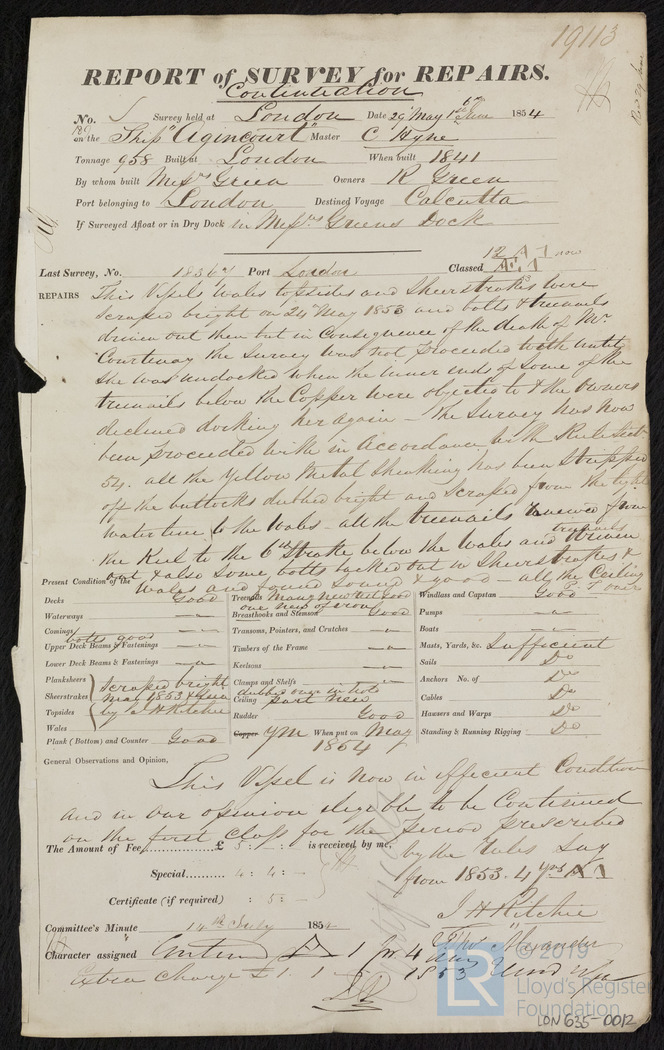 19113
REPORT of SURVEY for REPAIRS.
Continuation
No. Survey held at London Date 29 May 1854
on the Ship "Agincourt" Master C Hyne
Tonnage 958 Built at London When built 1841
By whom built Messrs Green Owners R Green
Port belonging to London Destined Voyage Calcutta
If Surveyed Afloat or in Dry Dock in Messrs Greens Dock
12 A 1 now
Last Survey, No. 18367 Port London Classed
REPAIRS This Vessels Wales topsides and Sheerstrakes were
scraped bright on 24 May 1853 and bolts & treenails
driven out then but in Consequence of the death of Mr.
Courtenay the Survey was not proceeded with until
she was undocked when the inner ends of some of the
treenails below the Copper were objected to & the owners
declined docking her again - the Survey has now
been proceeded with in Accordance with Rule Sect
54. all the Yellow Metal Sheathing has been Stripped
off the buttocks dubbed bright and scraped from the light
water line to the Wales - all the treenails renewed from
the Keel to the 6th Strake below the Wales and treenails driven
out & also some bolts backed out in Sheerstrakes &
Wales and found sound & good - all the Ceiling
Present Condition of the
Decks Good
Waterways
Comings
bolts good
Upper Deck Beams & Fastenings
Lower Deck Beams & Fastenings
Planksheers
Sheerstrakes
Topsides
Wales
scraped bright
May 1853
by J H Ritchie
Plank (Bottom) and Counter Good
Treenails Many new all good
one new of iron
Breasthooks and Stemson Good
Transoms, Pointers, and Crutches
Timbers of the Frame
Keelsons
Clamps and Shelfs
Ceiling part new
Rudder Good
Copper YM When put on May
1854
Windlass and Capstan Good
Pumps
Boats
Masts, Yards, &c. Sufficient
Sails Do
Anchors No. of Do
Cables Do
Hawsers and Warps Do
Standing & Running Rigging Do
General Observations and Opinion,
This Vessel is now in efficient Condition
and in our opinion eligible to be Continued
on the first Class for the period prescribed
by the Rules say
from 1853. 4 yrs A1
The Amount of Fee £ 5 : - : is received by me,
Special 4 : 4 : -
Certificate (if required) : 5 : -
J H Ritchie
Committee's Minute 14th July 185
Character assigned A 1 for 4
1853
Extra Charge £ 1. 1
© 2019
LR
Lloyd's Register
Foundation
LON 635-0012